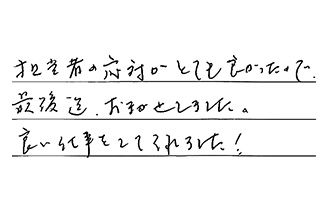 担当者の応対がとても良かったので、
最後迄、おまかせしました。
良い仕事をしてくれました!